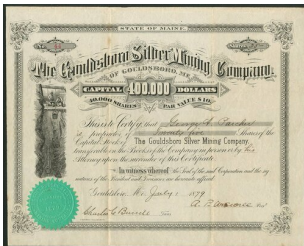 STATE OF MAINE.
The Gouldsboro Silver Mining Company,
OF GOULDSBORO, ME.
CAPITAL 400,000 DOLLARS
40,000 SHARES PAR VALUE $10.
This is to Certify that George
is proprietor of Shares of the
Capital Stock of The Gouldsboro Silver Mining Company,
transferable on the Books of the Company in person or by
Attorney upon the surrender of this Certificate.
In witness whereof the Seal of the said Corporation and the
of the President and Treasurer are hereunto affixed
Gouldsboro Me. July 1879
Charles C. Burrill